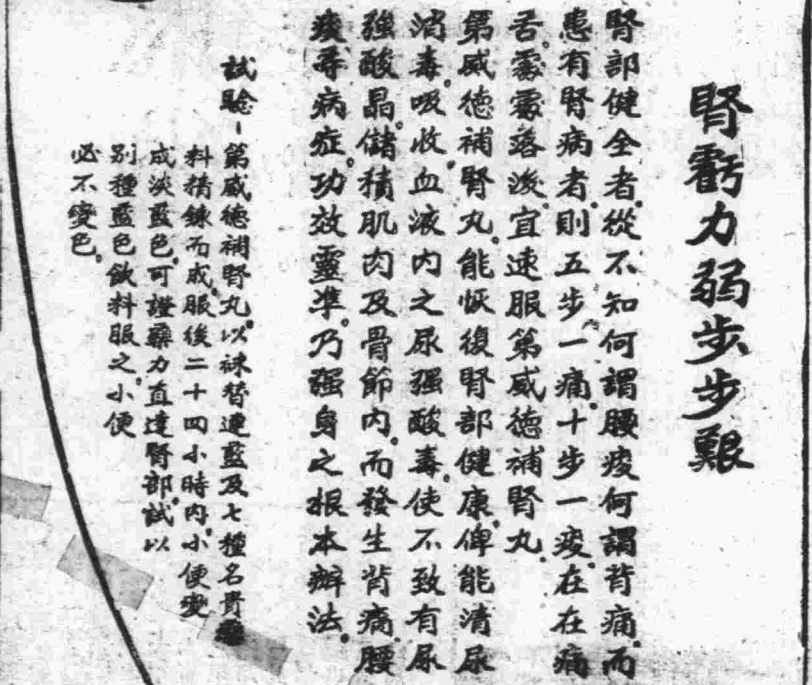 腎虧力弱步步艱
腎部健全者。從不知何謂腰痠何謂背痛。而
患有腎病者。則五步一痛。十步一痠。在在痛
苦。霧霧落淚。宜速服第威德補腎丸。
第威德補腎丸。能恢復腎部健康。俾能清尿
消毒。吸收血液內之尿强酸毒。使不致有尿
強酸晶。儲積肌肉及骨節內。而發生背痛腰
痠等病症。功效靈準。乃强身之根本辦法。
試驗-第威德補腎丸。以袜替連藍及七種名貴
料精鍊而成。服後二十四小時內。小便變
成淡藍色。可證藥力直達腎部。試以
別種藍色飲料服之。小便
必不變色。